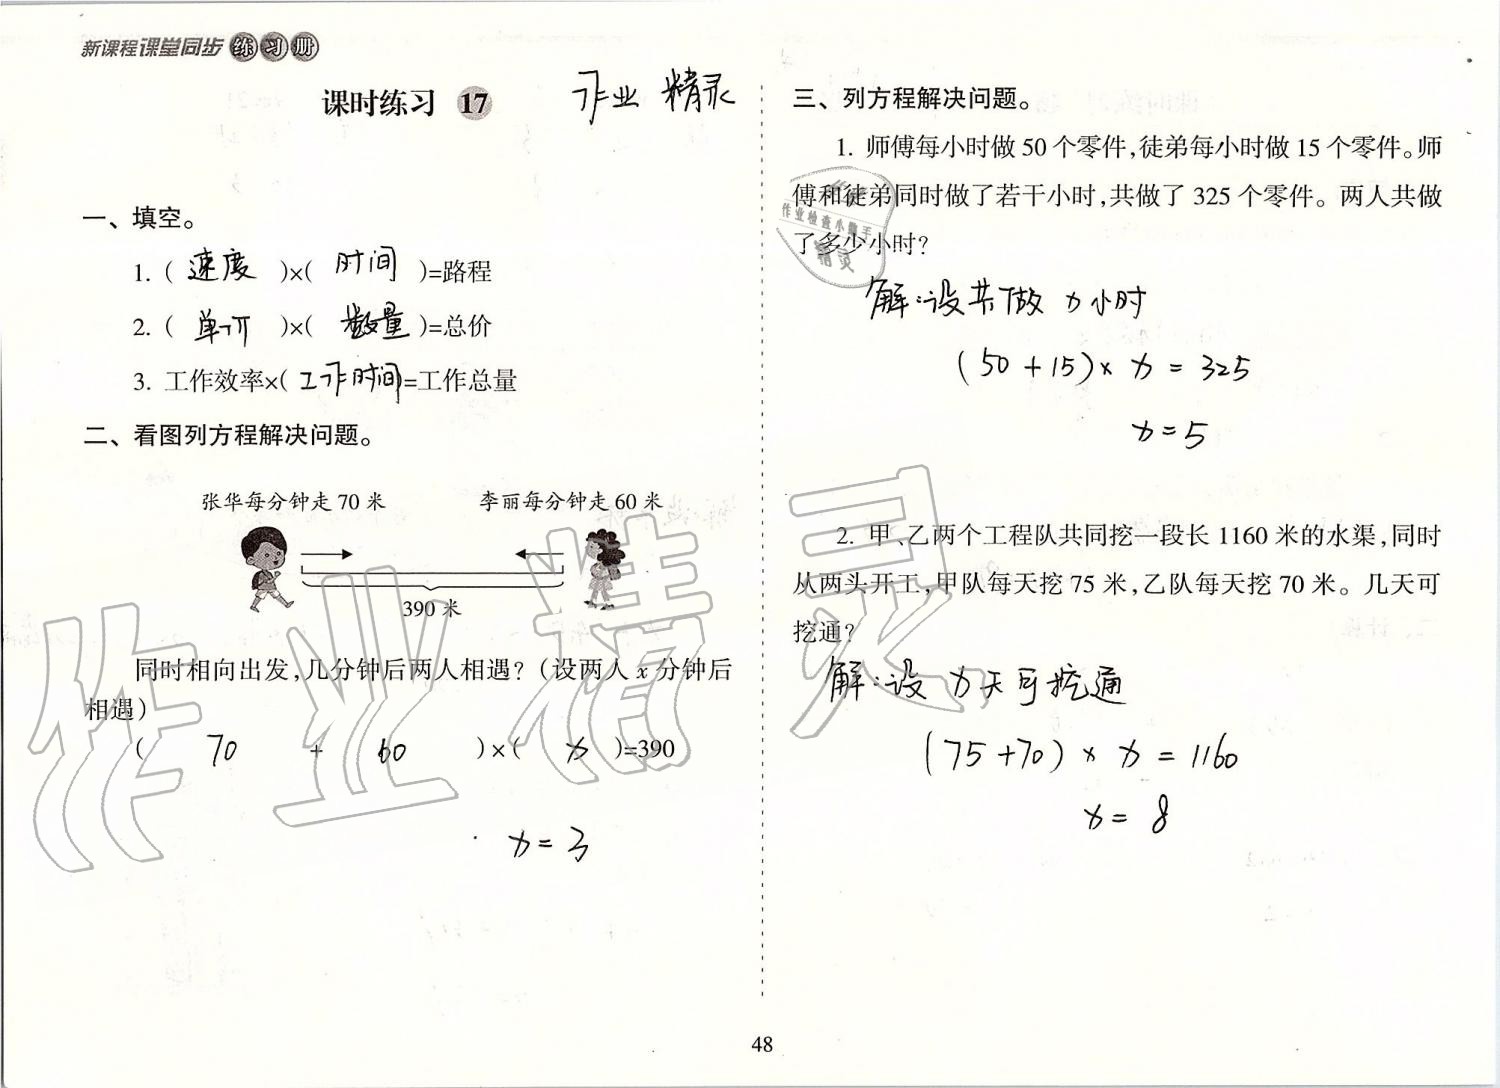 新课程课堂同步练习册
课时练习 17
作业精灵
一、填空。
1. ( 速度 )×( 时间 )=路程
2. ( 单价 )×( 数量 )=总价
3. 工作效率×( 工作时间 )=工作总量
二、看图列方程解决问题。
张华每分钟走 70 米 李丽每分钟走 60 米
390 米
同时相向出发,几分钟后两人相遇?(设两人 x 分钟后
相遇)
( 70 + 60 )×( x )=390
x=3
三、列方程解决问题。
1. 师傅每小时做 50 个零件,徒弟每小时做 15 个零件。师
傅和徒弟同时做了若干小时,共做了 325 个零件。两人共做
了多少小时?
作业检查小助手
精灵
解:设共做 x 小时
(50+15)×x=325
x=5
2. 甲、乙两个工程队共同挖一段长 1160 米的水渠,同时
从两头开工,甲队每天挖 75 米,乙队每天挖 70 米。几天可
挖通?
解:设 x 天可挖通
(75+70)×x=1160
x=8
作业精灵
48